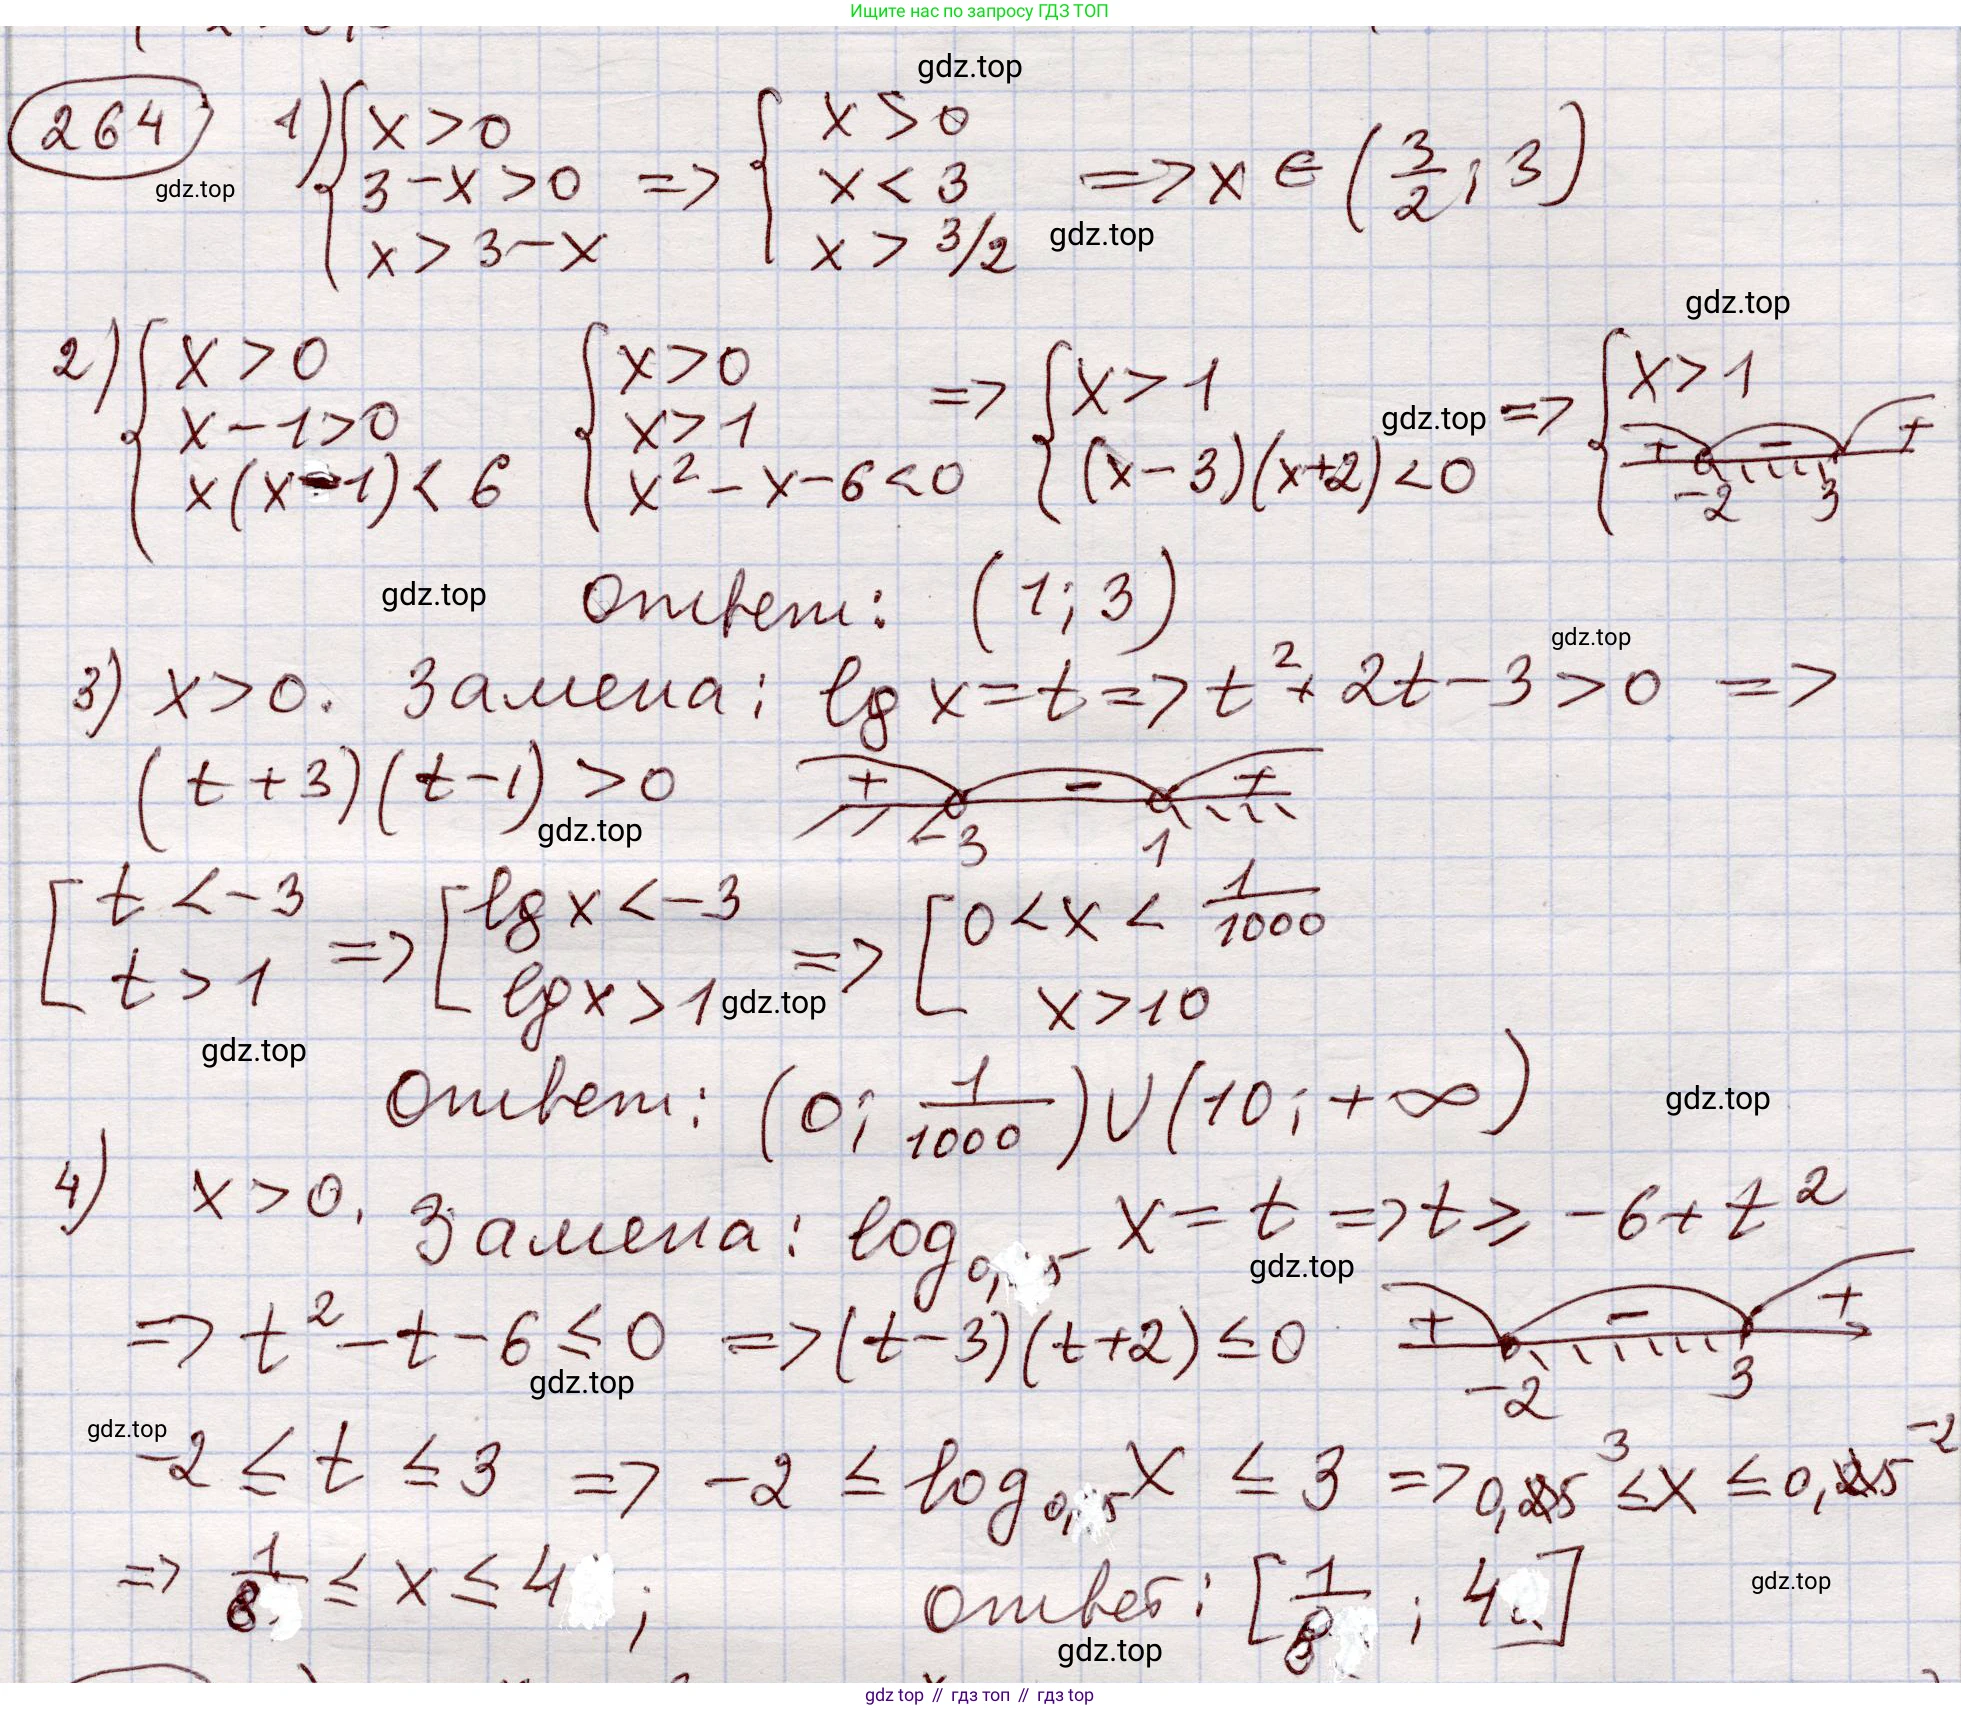 Ищите нас по запросу ГДЗ ТОП
gdz.top
264 1) { x > 0 ; 3 - x > 0 ; x > 3 - x => { x > 0 ; x < 3 ; x > 3/2 => x ∈ (3/2 ; 3)
gdz.top
gdz.top
gdz.top
2) { x > 0 ; x - 1 > 0 ; x(x - 1) < 6 { x > 0 ; x > 1 ; x² - x - 6 < 0 => { x > 1 ; (x - 3)(x + 2) < 0 => { x > 1 ; + - + -2 3
gdz.top
gdz.top
Ответ: (1; 3)
gdz.top
3) x > 0. Замена: lg x = t => t² + 2t - 3 > 0 =>
(t + 3)(t - 1) > 0 + - + -3 1
gdz.top
[ t < -3 ; t > 1 => [ lg x < -3 ; lg x > 1 => [ 0 < x < 1/1000 ; x > 10
gdz.top
gdz.top
Ответ: (0; 1/1000) ∪ (10; +∞)
gdz.top
4) x > 0. Замена: log 0, 5 x = t => t ≥ -6 + t²
gdz.top
=> t² - t - 6 ≤ 0 => (t - 3)(t + 2) ≤ 0 + - + -2 3
gdz.top
gdz.top
-2 ≤ t ≤ 3 => -2 ≤ log 0,5 x ≤ 3 => 0,5³ ≤ x ≤ 0,5⁻²
=> 1/8 ≤ x ≤ 4 ; Ответ: [1/8 ; 4]
gdz.top
gdz.top
gdz top // гдз топ // гдз top